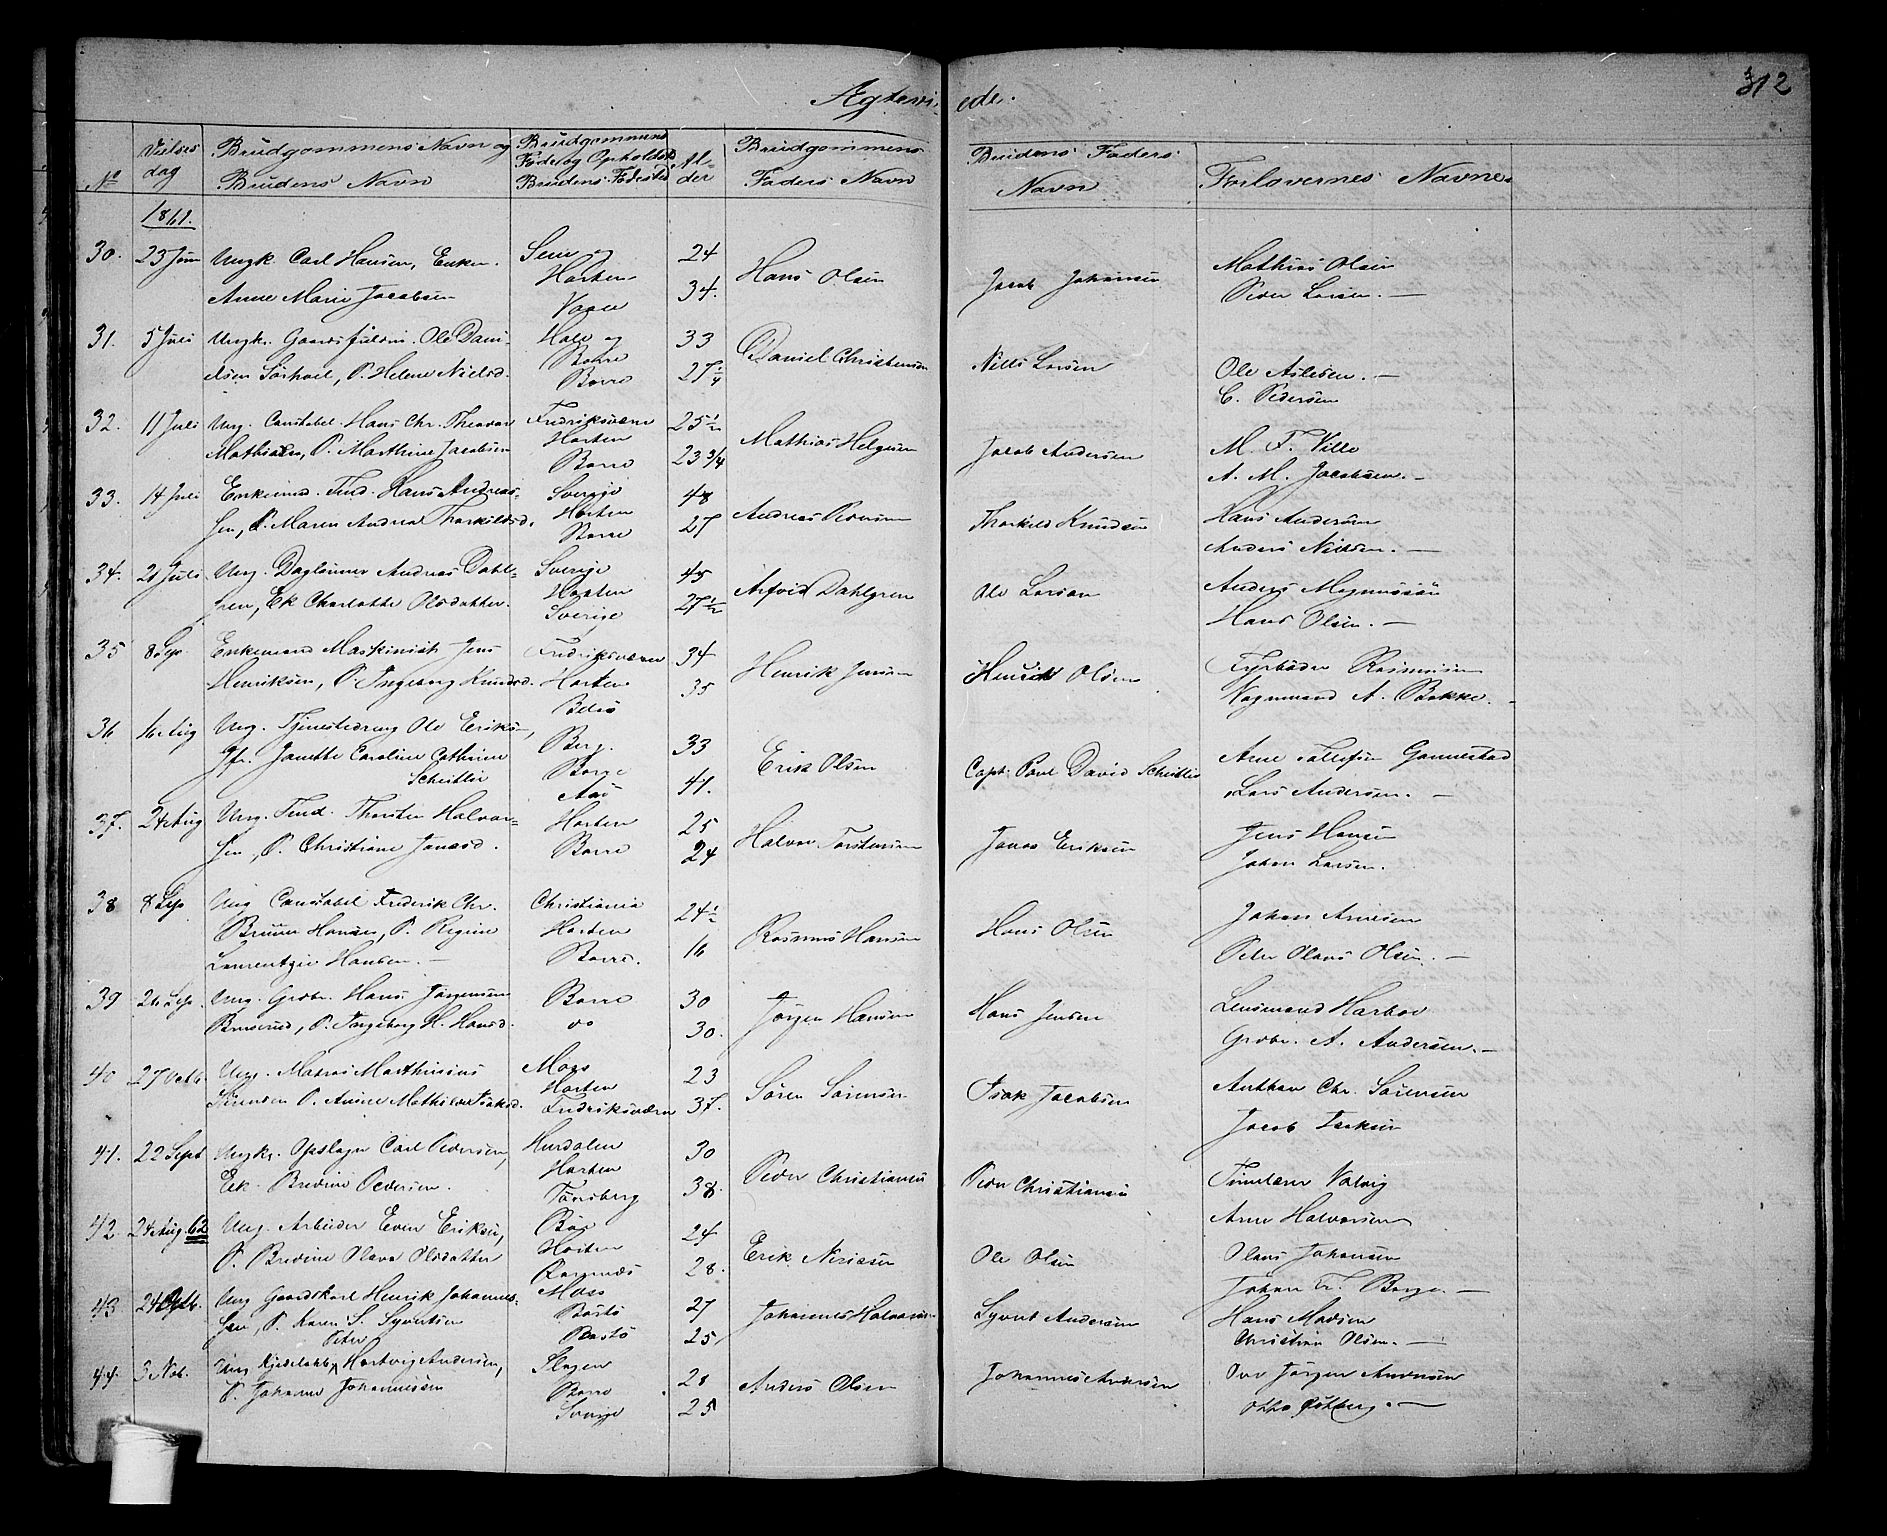 Ægtevi- ede.
312
No
Vielses dag
Brudgommens Navn og Brudens Navn
Brudgommens Føde og Opholdsted Brudens Fødested
Al- der
Brudgommens Faders Navn
Brudens Faders Navn
Forlovernes Navne
1861.
30. 23 Juni Ungk. Carl Hansen, Enken og 24 Mathias Olsen
Anne Marie Jacobsen Horten 34. Hans Olsen Jacob Johansen Peder Larsen. —
31. 5 Juli Ungk. Ole Dani- og 33
elsen, P. Helene Nielsd. Borre 27 1/4 Daniel Christensen Niels Larsen Ole Aslesen. —
Borre C. Pedersen
32. 11 Juli Ung. Constabel Hans Chr. Theodor Fredriksværn 25 1/2 M. F. Ville
Mathisen, P. Marthine Jacobsen Horten 23 3/4 Mathias Helgesen Jacob Andersen A. M. Jacobsen. —
Borre
33. 14 Juli Enkemand. Tmd. Hans Andreas- Sverige 48 Hans Andersen
sen, P. Maren Andrea Thorkildsd. Horten 27 Andreas Thorkild Knudsen Anders Nielsen. —
Borre
34. 21 Juli Ung. Daglønner Andreas Dahl- Sverige 45 Anders Magnussøn
gren, Ek Charlotte Olsdatter. Horten 27 1/2 Arfvid Dahlgren Ole Larsen Hans Olsen. —
Sverige
35 8 Sep. Enkemand Maskinist Jens Fredriksværn 34 Fyrbøder Rasmussen
Henriksen, P. Ingeborg Knudsd. Horten 35 Henrik Jensen Olsen Vognmand A. Bakke. —
36 16 Aug Ung. Tjenestedreng Ole Eriksen, Berg. 33 Arne Gannestad
Jfr. Janette Caroline Cathrine Borre 41. Erik Olsen Capt. Paul David Lars Andersen. —
37. 24 Aug Ung. Tmd. Thorsten Halvor- Horten 25 Jens Hansen
sen, P. Christiane Jonasd. Borre 24 Halvor Torstensen Jonas Eriksen Johan Larsen.
38 8 Sep Ung Constabel Frederik Chr. Christiania 24 1/2 Johan Arnesen
Bruun Hansen, P. Regine Horten 16 Rasmus Hansen Hans Olsen Peter Olaus Olsen. —
Laurentzie Hansen. — Borre.
39 26 Sep. Ung. Grdbr. Hans Jørgensen Borre 30 Lensmand Harboe
P. Ingeborg H. Hansd. do 30. Jørgen Hansen Hans Jensen Grdbr. A. Andersen. —
40 27 Octb. Ung. Matros Marthinius Moss 23 Anthon Chr. Sørensen
Sørensen P. Anne Mathilde Isaksd. Horten 37. Søren Sørensen Isak Jacobsen Jacob Isaksen
Fredriksværn
41. 22 Sept Ungk. Opslagn Carl Pedersen, Hurdalen 30
Ek. Bredine Pedersen. Horten 38. Peder Christiansen Peder Christiansen
Tønsberg Arne Halvorsen
42 24 Aug. 62 Ung. Arbeider Even Eriksen, Bøe 24
P. Bredine Olava Olsdatter Horten 28. Erik Ole Olsen Olaus Johansen
43 24 Octb. Ung Gaardskarl Henrik Johannes- Moss 27 Hans Madsen
sen, P. Karen S. Syvertsen Bastø 25 Johannes Halvorsen Syvert Andersen Christian Olsen. —
Peter Bastø
44. 3 Nov. Ung Hartvig Andersen, Slagen 28 Jørgen
P. Johanne Johannessen Borre 25 Anders Olsen Johannes Andersen Otto
Sverige